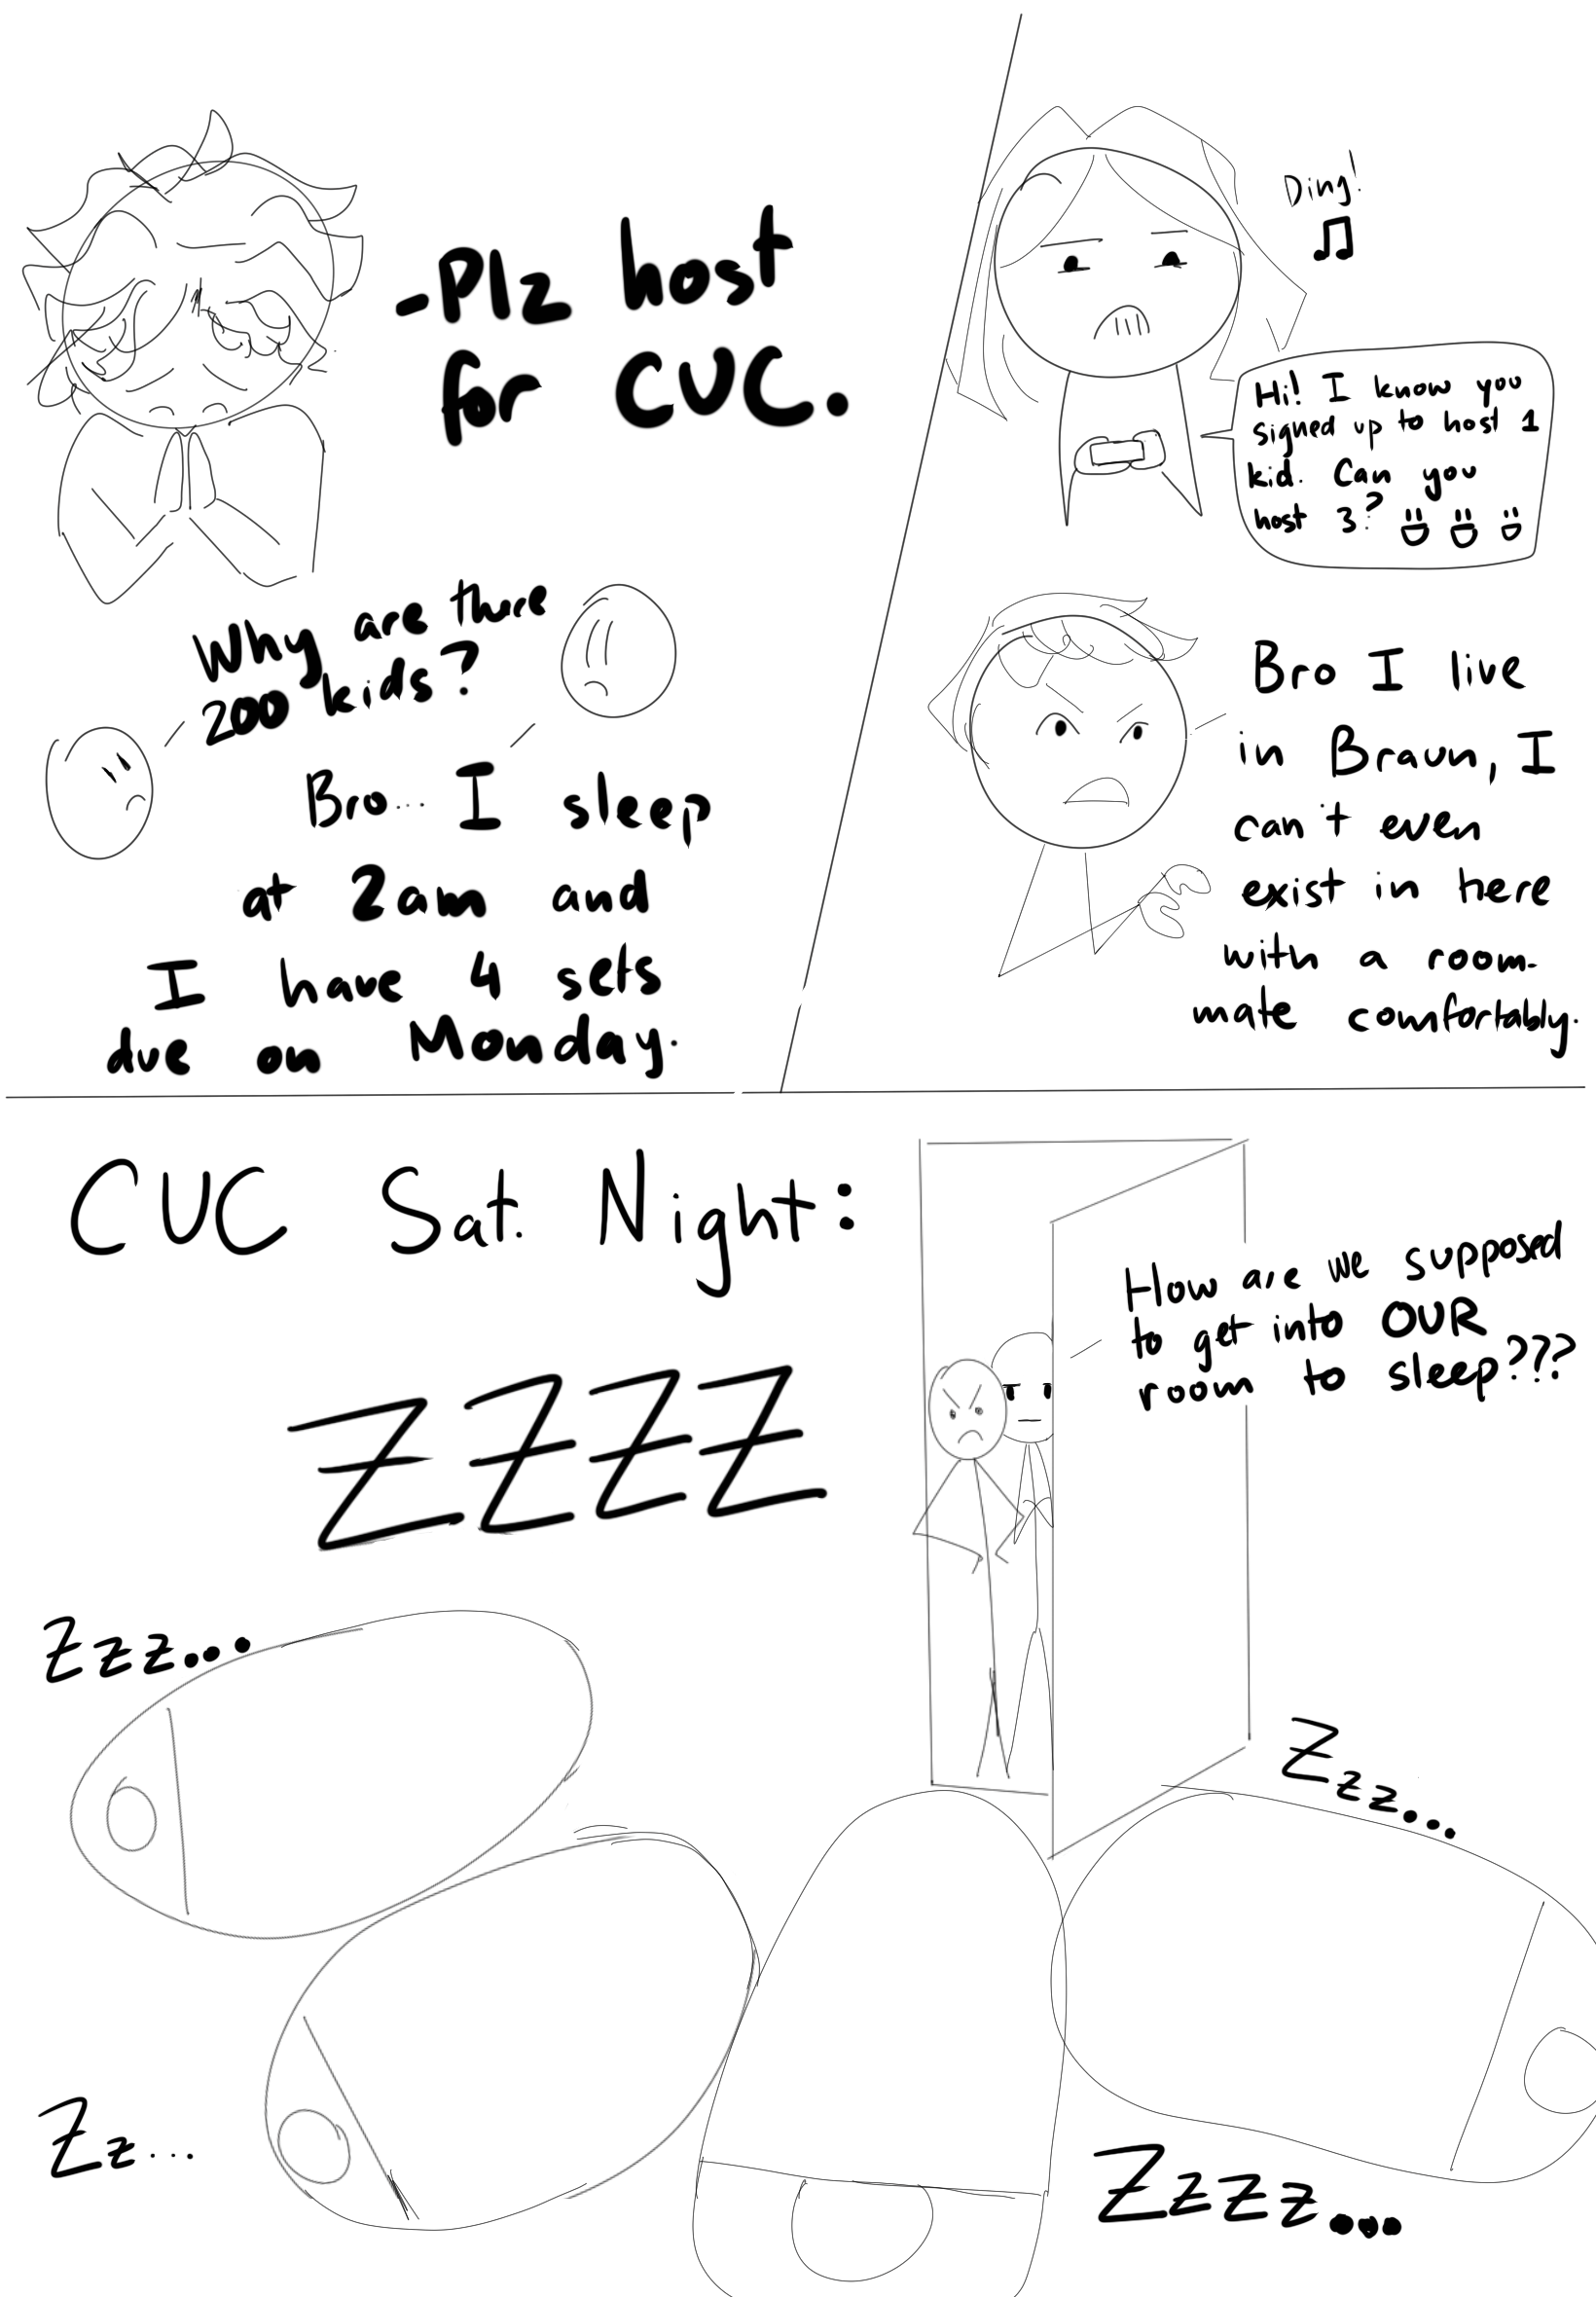 -Plz host
for CUC.
Why are there
200 kids?
Bro... I sleep
at 2am and
I have 4 sets
due on Monday.
Ding!
Hi! I know you
signed up to host 1
kid. Can you
host 3?
Bro I live
in Braun, I
can't even
exist in here
with a room-
mate comfortably.
CUC Sat. Night:
How are we supposed
to get into OUR
room to sleep???
ZZZZ
Zzz...
Zzz...
Zz...
Zzzz...